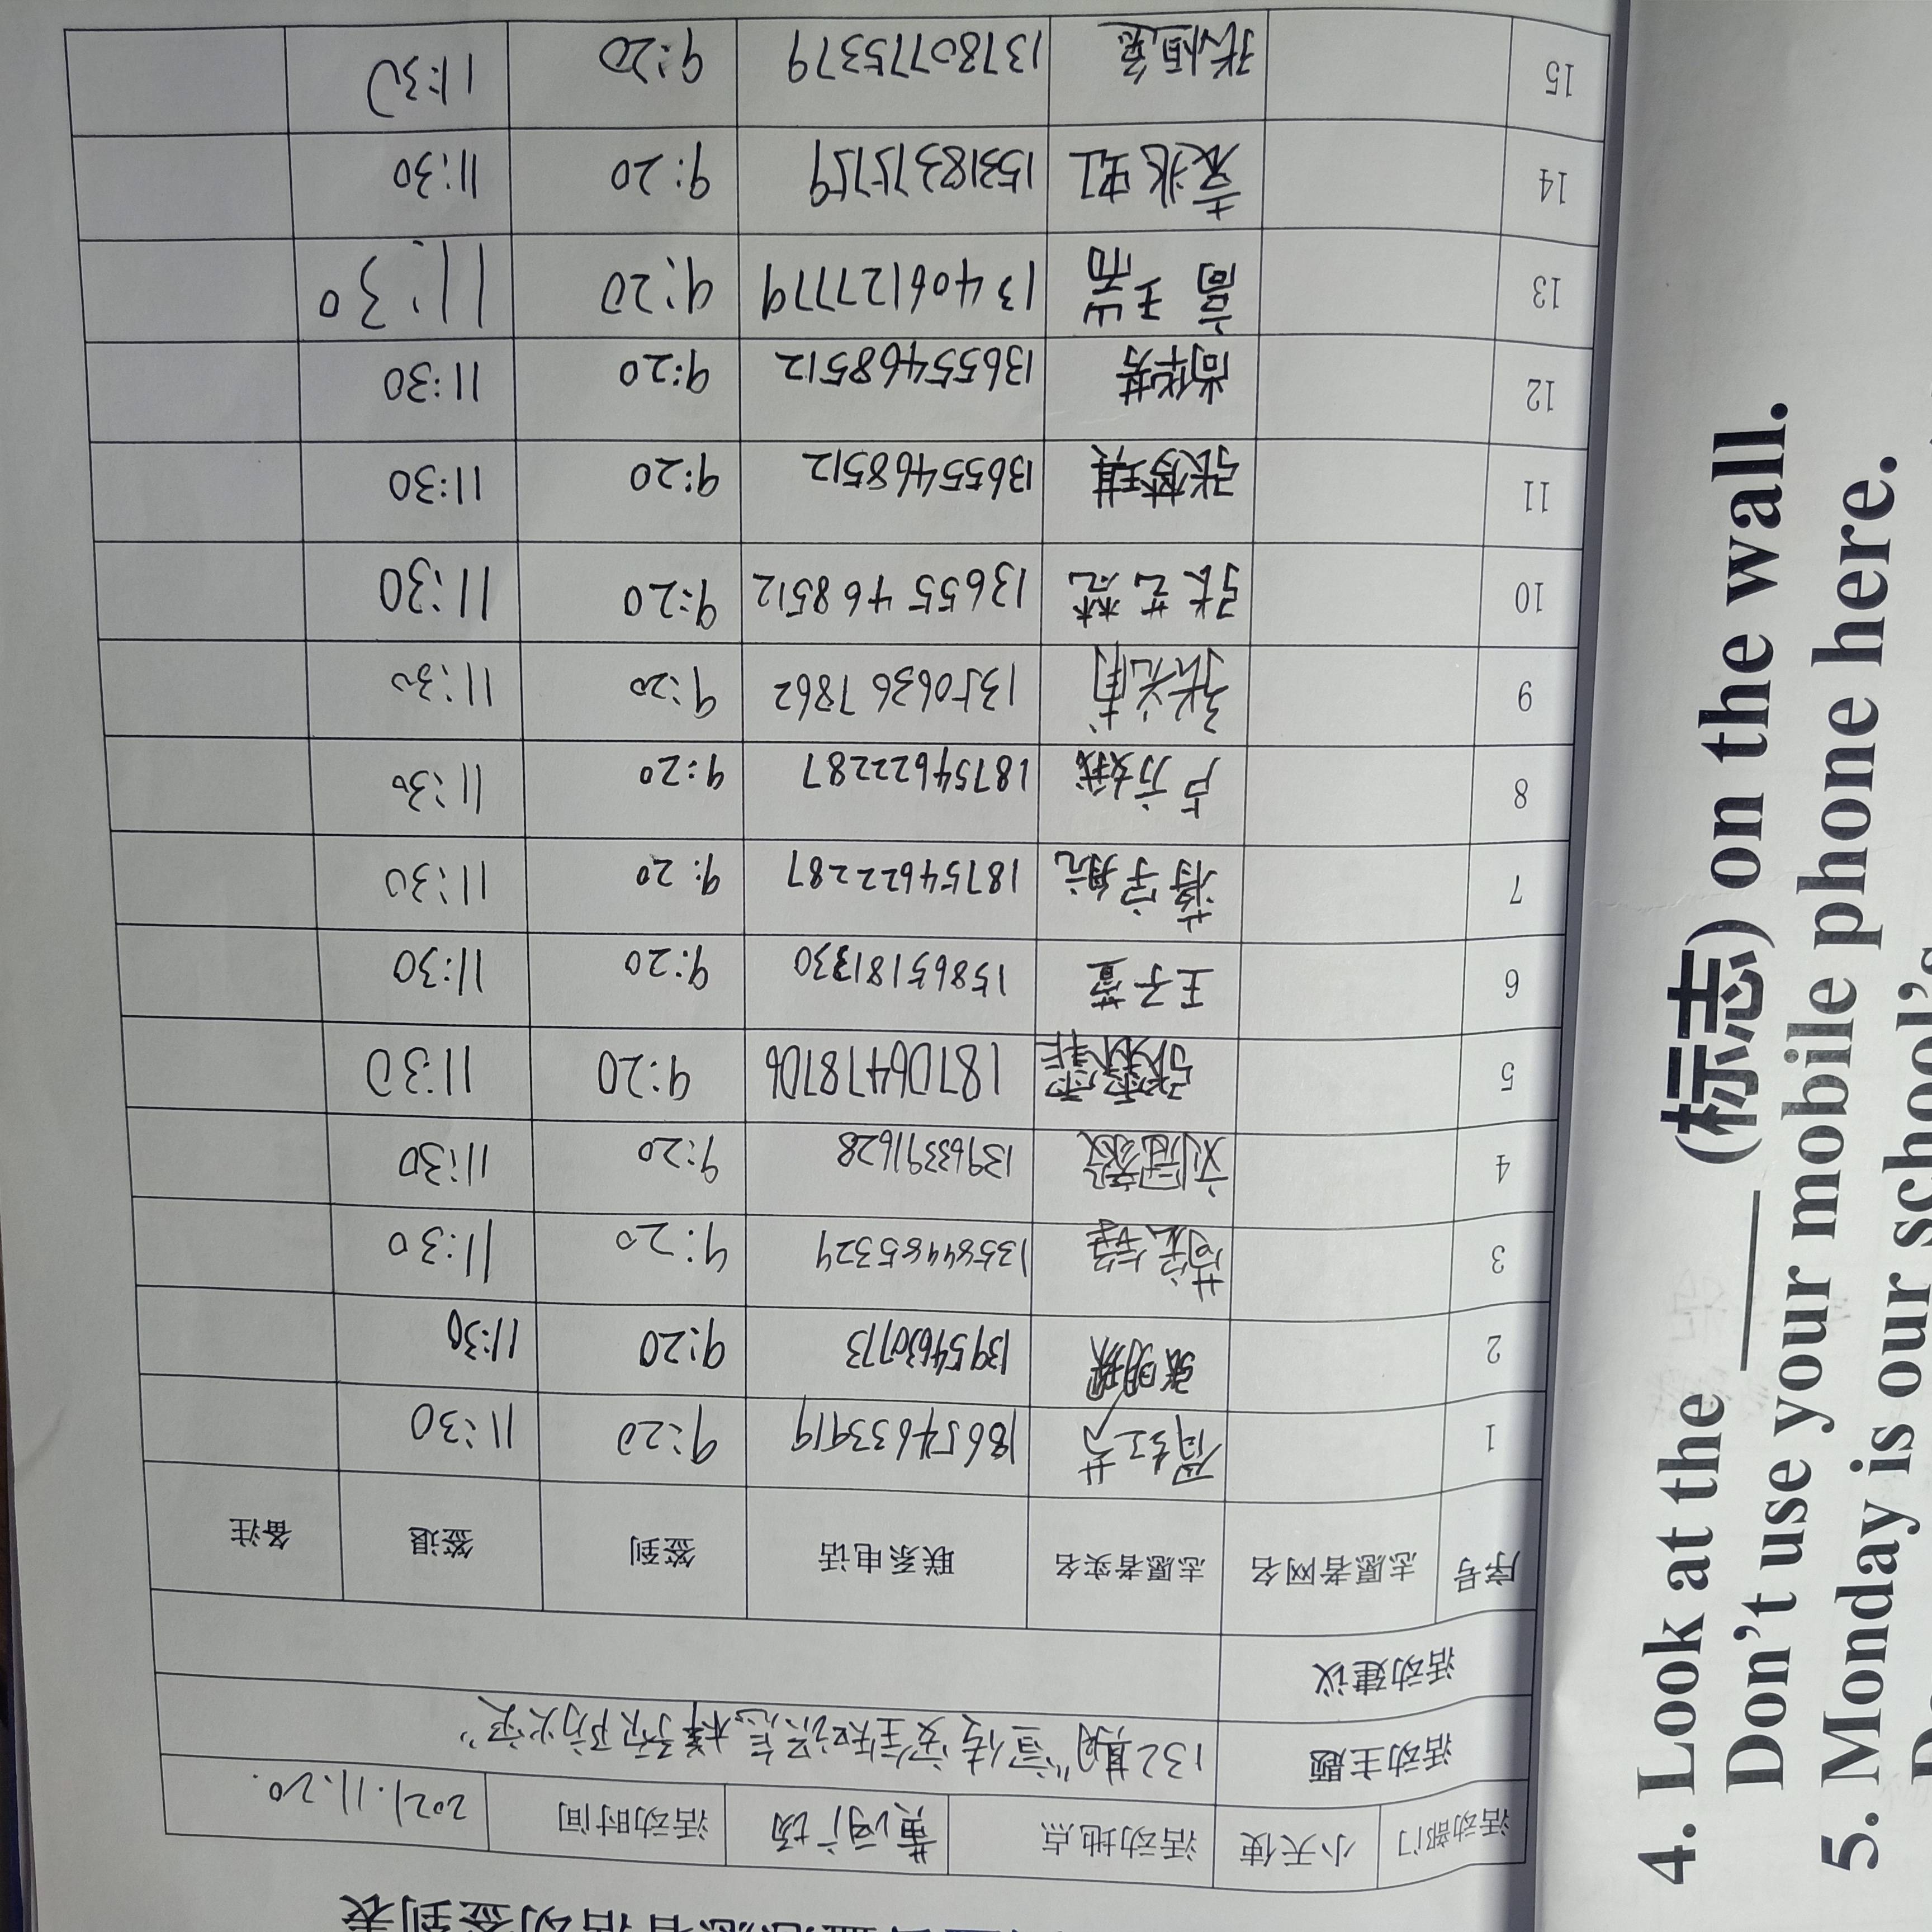 活动签到表
活动部门 小天使 活动地点 黄河广场 活动时间 2021.11.20.
活动主题 132期"宣传安全知识怎样预防火灾"
活动建议
序号 志愿者网名 志愿者实名 联系电话 签到 签退 备注
1 18654633919 9:20 11:30
2 张明珠 13954630773 9:20 11:30
3 13584485329 9:20 11:30
4 刘冠毅 13963391628 9:20 11:30
5 18706478706 9:20 11:30
6 王子萱 15865181330 9:20 11:30
7 蒋宇航 18754622287 9:20 11:30
8 卢方娥 18754622287 9:20 11:30
9 13506367862 9:20 11:30
10 张艺梵 13655468512 9:20 11:30
11 张梦琪 13655468512 9:20 11:30
12 尚华芳 13655468512 9:20 11:30
13 高玉岩 13406127779 9:20 11:30
14 袁兆虹 15318375759 9:20 11:30
15 张恒宾 13780775379 9:20 11:30
4. Look at the ______ (标志) on the wall.
Don't use your mobile phone here.
5. Monday is our school's